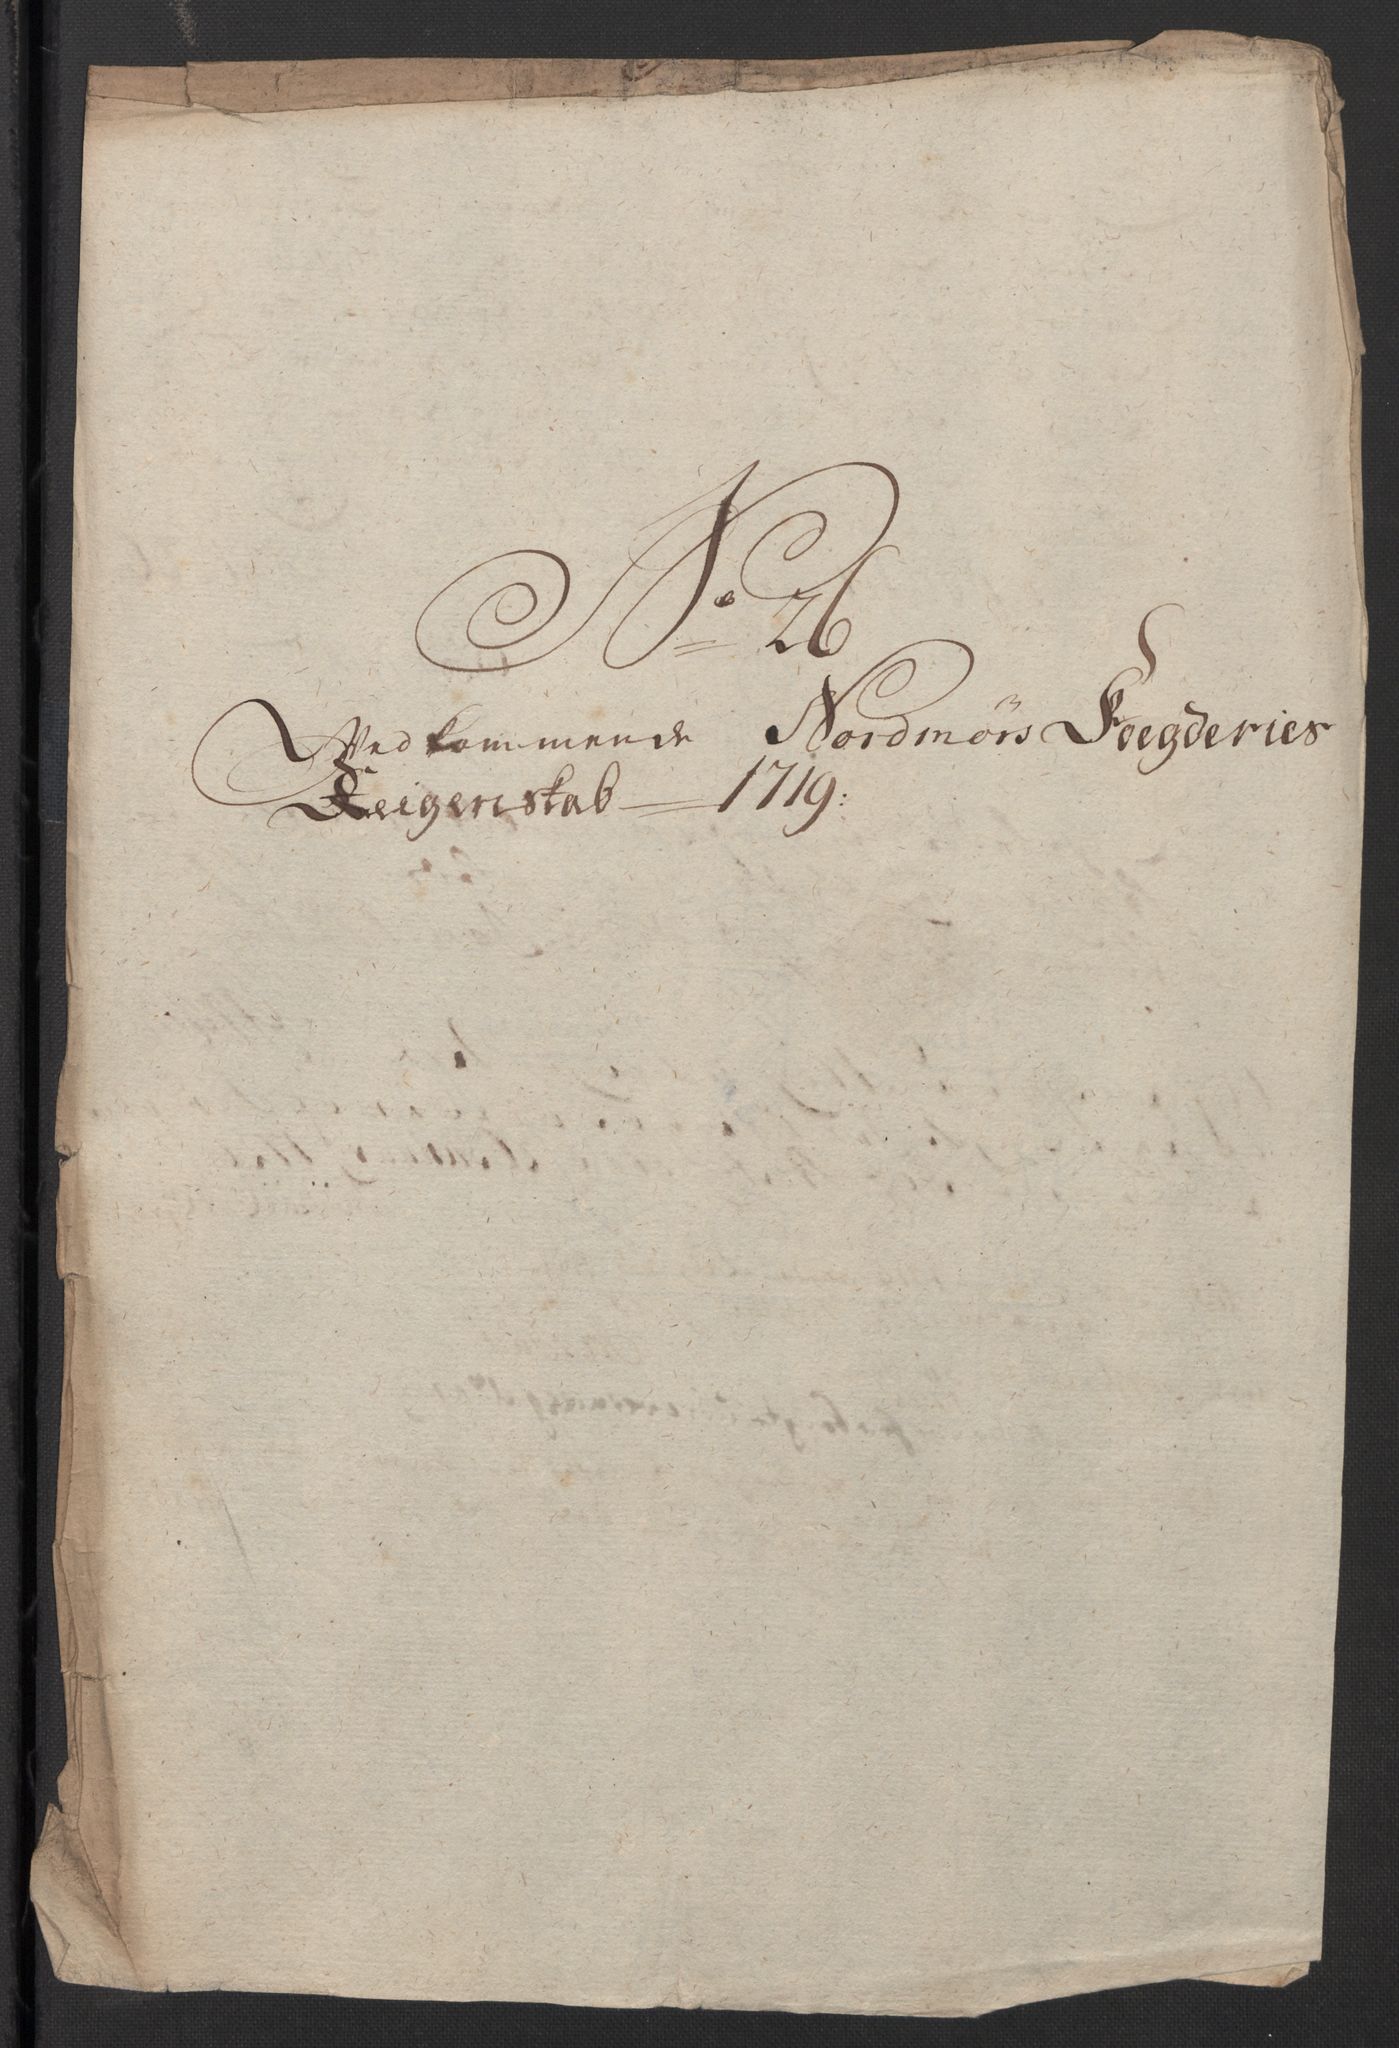 No 26
Vedkommende Nordmörs Foegderies
Reigenskab 1719: